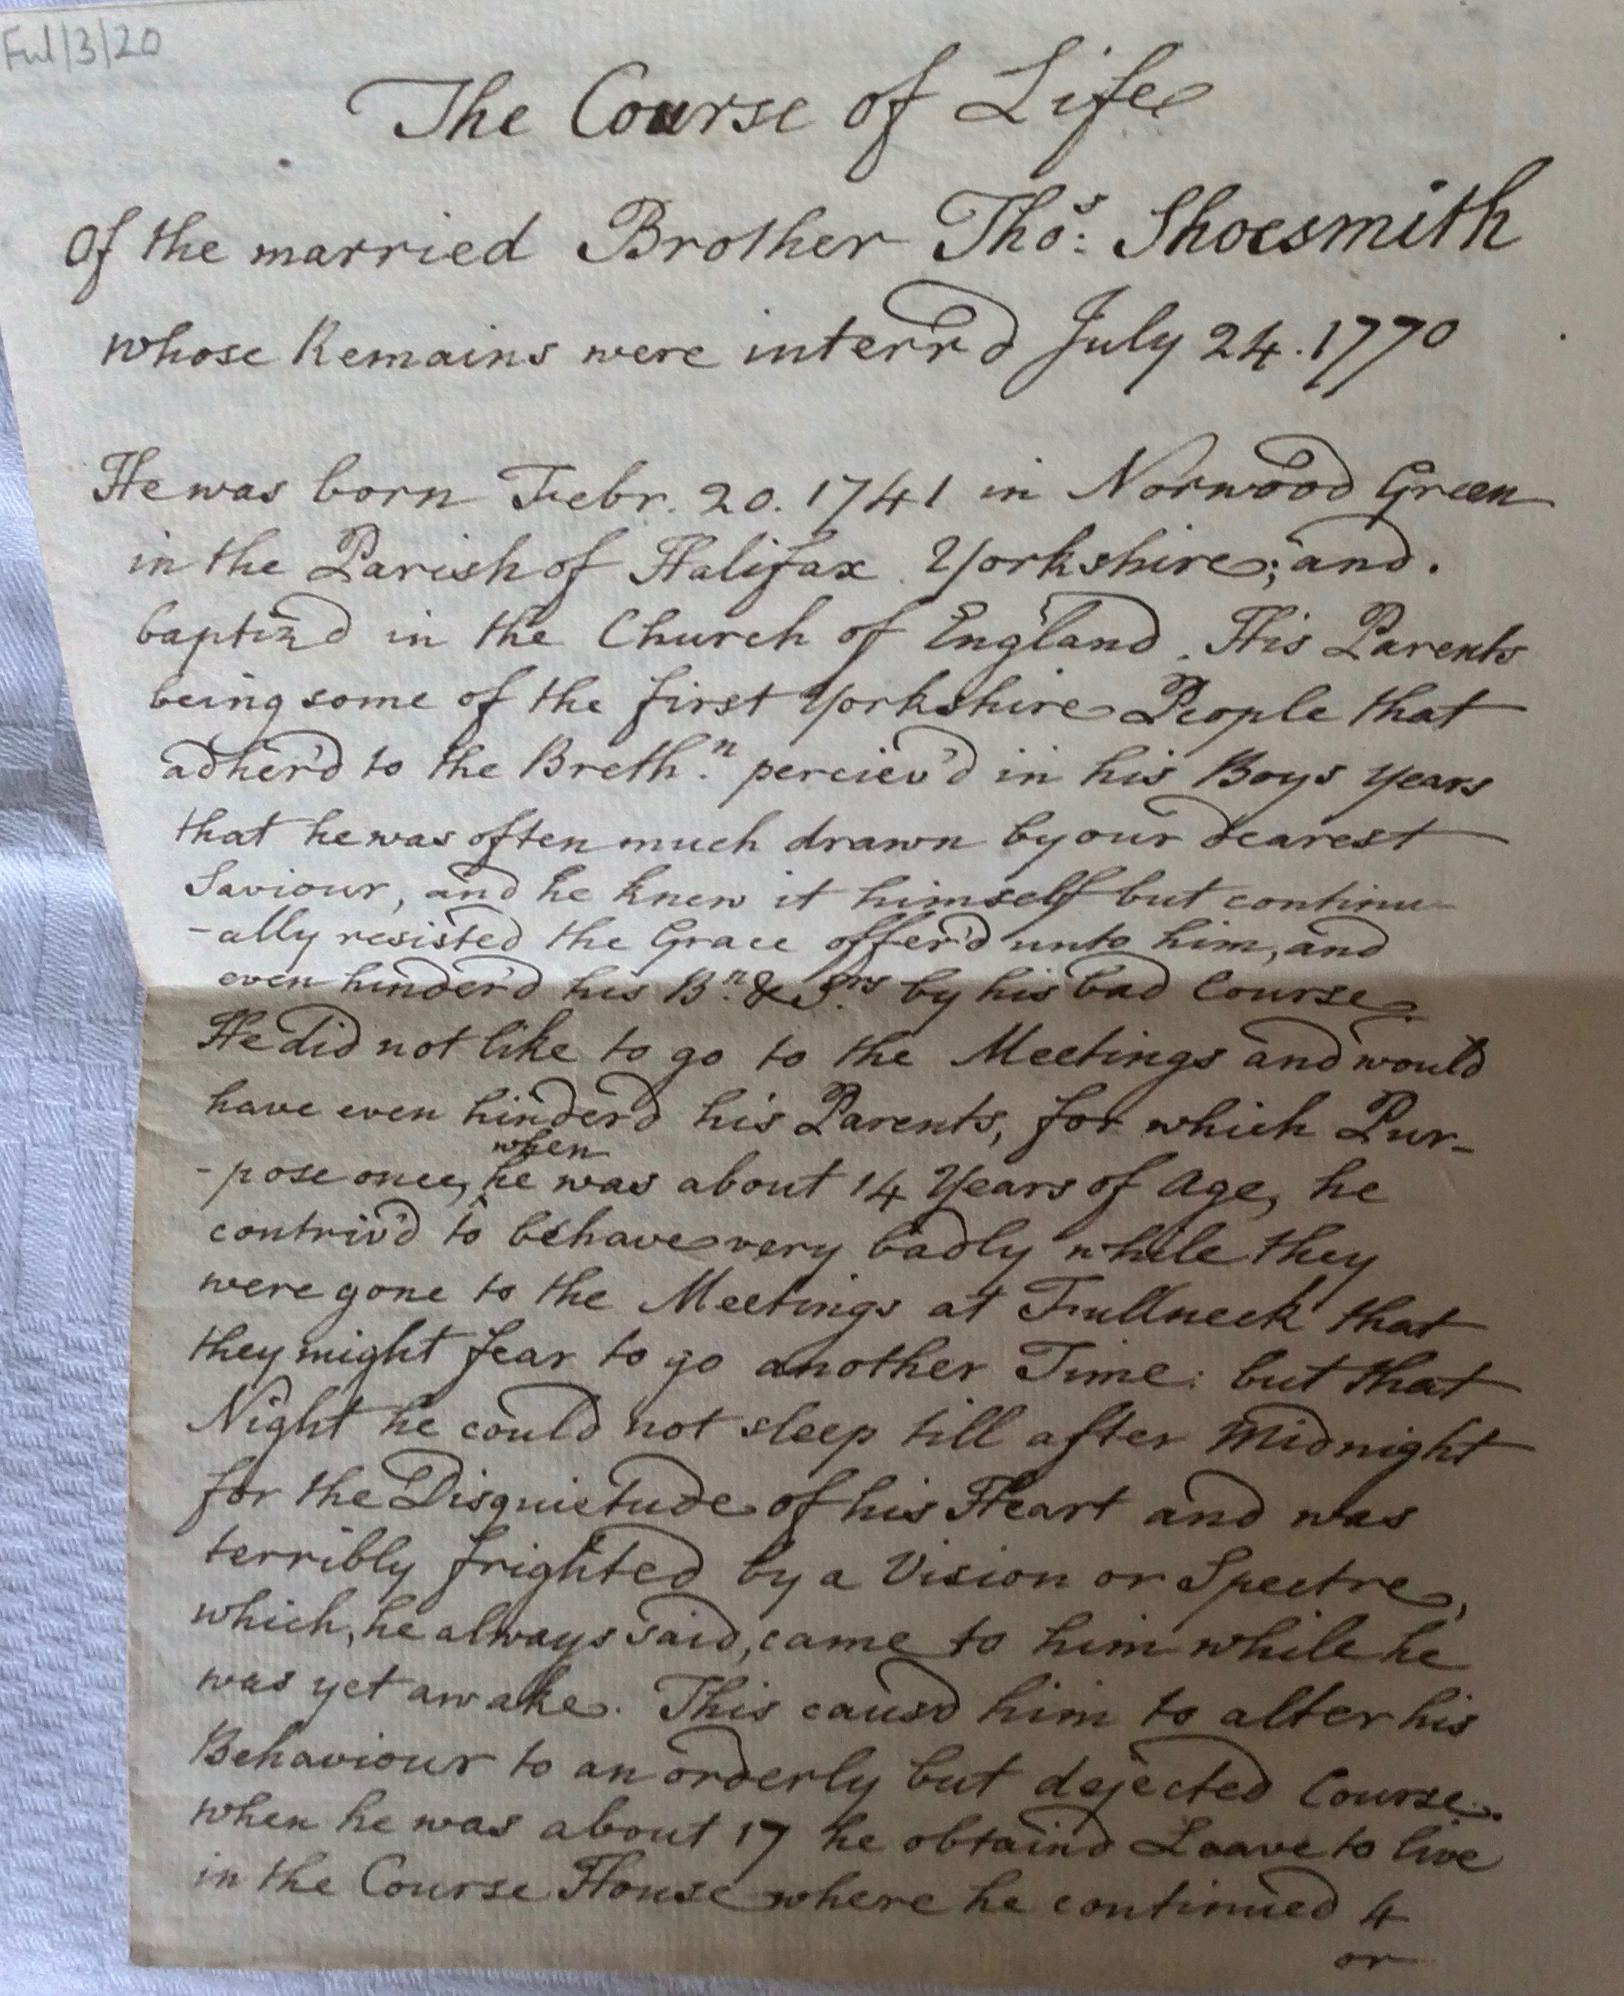 Ful/3/20
The Course of Life
Of the married Brother Tho.s Shoesmith
whose Remains were interr'd July 24. 1770
He was born Febr. 20. 1741 in Norwood Green
in the Parish of Halifax Yorkshire; and.
baptiz'd in the Church of England. His Parents
being some of the first Yorkshire People that
adher'd to the Breth.n perciev'd in his Boys Years
that he was often much drawn by our dearest
Saviour, and he knew it himself but continu-
-ally resisted the Grace offer'd unto him, and
even hinder'd his B.n & S.rs by his bad Course.
He did not like to go to the Meetings and would
have even hinder'd his Parents, for which Pur-
when
-pose once, ^he was about 14 Years of Age, he
contriv'd to behave very badly while they
were gone to the Meetings at Fullneck that
they might fear to go another Time: but that
Night he could not sleep till after Midnight
for the Disquietude of his Heart and was
terribly frighted by a Vision or Spectre,
which, he always said, came to him while he
was yet awake. This causd him to alter his
Behaviour to an orderly but dejected Course.
when he was about 17 he obtaind Leave to live
in the Course House where he continued 4
or